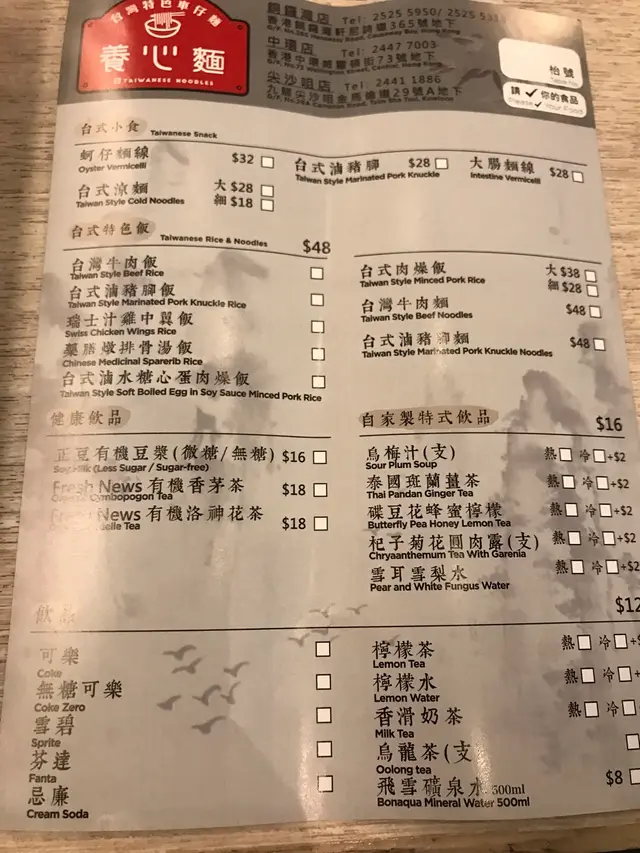 台灣特色車仔麵
養心麵
TAIWANESE NOODLES
銅鑼灣店 Tel: 2525 5950/ 2525
香港銅鑼灣軒尼詩道365號地下
中環店 Tel: 2447 7003
香港中環威靈頓街73號地下
尖沙咀店 Tel: 2441 1886
九龍尖沙咀金馬倫道29號A地下
枱號
Table No.
請 ✓ 你的食品
Please ✓ Your Food
台式小食 Taiwanese Snack
蚵仔麵線 $32
Oyster Vermicelli
台式滷豬腳 $28
Taiwan Style Marinated Pork Knuckle
大腸麵線 $28
Intestine Vermicelli
台式涼麵 大 $28
Taiwan Style Cold Noodles 細 $18
台式特色飯 Taiwanese Rice & Noodles $48
台灣牛肉飯
Taiwan Style Beef Rice
台式滷豬腳飯
Taiwan Style Marinated Pork Knuckle Rice
瑞士汁雞中翼飯
Swiss Chicken Wings Rice
藥膳燉排骨湯飯
Chinese Medicinal Sparerib Rice
台式滷水糖心蛋肉燥飯
Taiwan Style Soft Boiled Egg in Soy Sauce Minced Pork Rice
台式肉燥飯 大 $38
Taiwan Style Minced Pork Rice 細 $28
台灣牛肉麵 $48
Taiwan Style Beef Noodles
台式滷豬腳麵 $48
Taiwan Style Marinated Pork Knuckle Noodles
健康飲品
正豆有機豆漿(微糖/無糖) $16
(Less Sugar / Sugar-free)
Fresh News 有機香茅茶 $18
Cymbopogon Tea
News 有機洛神花茶 $18
Tea
自家製特式飲品 $16
烏梅汁(支) 熱 冷 +$2
Sour Plum Soup
泰國班蘭薑茶 熱 冷 +$2
Thai Pandan Ginger Tea
碟豆花蜂蜜檸檬 熱 冷 +$2
Butterfly Pea Honey Lemon Tea
杞子菊花圓肉露(支) 熱 冷 +$2
Chryaanthemum Tea With Garenia
雪耳雪梨水 熱 冷 +$2
Pear and White Fungus Water
飲品 $12
可樂
Coke
無糖可樂
Coke Zero
雪碧
Sprite
芬達
Fanta
忌廉
Cream Soda
檸檬茶 熱 冷
Lemon Tea
檸檬水 熱 冷
Lemon Water
香滑奶茶 熱 冷
Milk Tea
烏龍茶(支
Oolong tea
飛雪礦泉水 500ml $8
Bonaqua Mineral Water 500ml